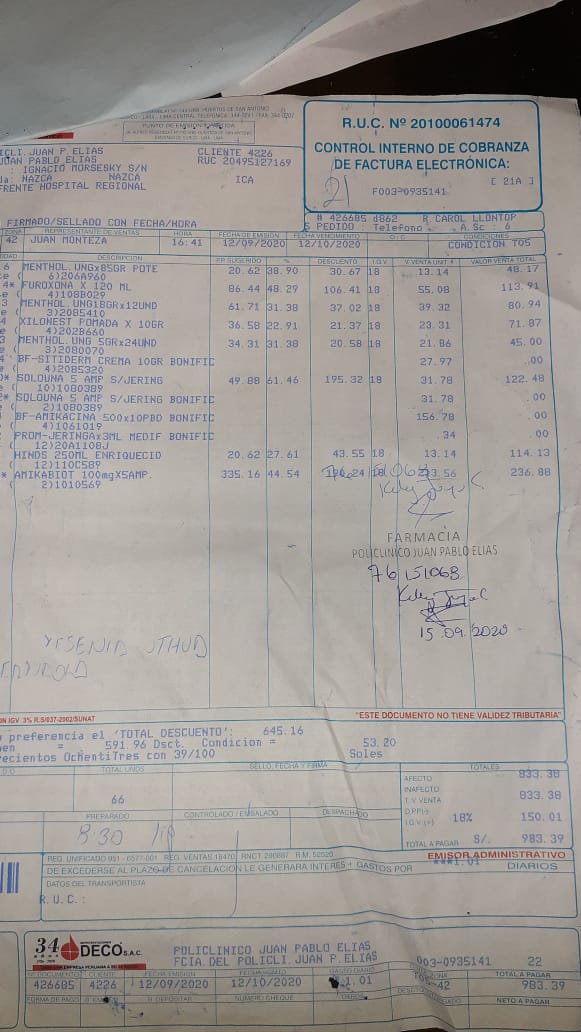 HUERTOS DE SAN ANTONIO
LIMA CENTRAL TELEFONICA:
PUNTO DE EMISION
R.U.C. Nº 20100061474
CONTROL INTERNO DE COBRANZA
DE FACTURA ELECTRÓNICA:
21 [ 21A ]
F003-0935141
ICLI. JUAN P. ELIAS CLIENTE 4226
JUAN PABLO ELIAS RUC 20495127169
: IGNACIO MORSESKY S/N
da: NAZCA NAZCA ICA
FRENTE HOSPITAL REGIONAL
# 426685 d862 R. CAROL LLONTOP
S PEDIDO : Telefono A.Sc : 6
FIRMADO/SELLADO CON FECHA/HORA
ZONA REPRESENTANTE DE VENTAS HORA FECHA DE EMISION FECHA VENCIMIENTO O / C CONDICIONES
42 JUAN MONTEZA 16:41 12/09/2020 12/10/2020 CONDICION T05
DESCRIPCION P.P. SUGERIDO % DESCUENTO I.G.V V. VENTA UNIT. VALOR VENTA TOTAL
6 MENTHOL.UNGx85GR POTE 20.62 38.90 30.67 18 13.14 48.17
e ( 6)206A960
4* FUROXONA X 120 ML 86.44 48.29 106.41 18 55.08 113.91
e ( 4)108B029
3 MENTHOL.UNG18GRx12UND 61.71 31.38 37.02 18 39.32 80.94
e ( 3)2085410
4 XILONEST POMADA X 10GR 36.58 22.91 21.37 18 23.31 71.87
e ( 4)202B660
3 MENTHOL UNG 5GRx24UND 34.31 31.38 20.58 18 21.86 45.00
e ( 3)2080070
4 BF-SITIDERM CREMA 10GR BONIFIC 27.97 .00
e ( 4)2085320
0* SOLOUNA 5 AMP S/JERING 49.88 61.46 195.32 18 31.78 122.48
e ( 10)1080389
2* SOLOUNA 5 AMP S/JERING BONIFIC 31.78 .00
e ( 2)1080389
4 BF-AMIKACINA 500x10PBD BONIFIC 156.78 .00
( 4)1061019
FROM-JERINGAx3ML MEDIF BONIFIC .34 .00
( 12)20A1108J
HINDS 250ML ENRIQUECID 20.62 27.61 43.55 18 13.14 114.13
( 12)110C589
* AMIKABIOT 100mgX5AMP. 335.16 44.54 190.24 18 213.56 236.88
( 2)1010569
FARMACIA
POLICLINICO JUAN PABLO ELIAS
76151068
15.09.2020
YESENIA
IGV 3% R.S/037-2002/SUNAT "ESTE DOCUMENTO NO TIENE VALIDEZ TRIBUTARIA"
preferencia el 'TOTAL DESCUENTO': 645.16
= 591.96 Dsct. Condicion = 53.20
recientos OchentiTres con 39/100 Soles
TOTAL UNDS SELLO, FECHA Y FIRMA TOTALES
66
AFECTO 833.38
INAFECTO
T. V. VENTA 833.38
D.P.P.(-)
I.G.V. (+) 18% 150.01
TOTAL A PAGAR S/. 983.39
PREPARADO CONTROLADO / EMBALADO DESPACHADO
EMISOR ADMINISTRATIVO
REG. UNIFICADO 951 - 0577-001 REG. VENTAS 18470
DE EXCEDERSE AL PLAZO DE CANCELACION LE GENERARA INTERES + GASTOS POR ***1.01 DIARIOS
DATOS DEL TRANSPORTISTA
R.U.C.:
34 DECO S.A.C.
POLICLINICO JUAN PABLO ELIAS
FCIA. DEL POLICLI. J UAN P. ELIAS 003-0935141 22
Nº DOCUMENTO CLIENTE FECHA EMISION GASTO DIARIO ZONA TOTAL A PAGAR
426685 4226 12/09/2020 12/10/2020 1.01 T05-42 983.39
FORMA DE PAGO DEPOSITAR NUMERO CHEQUE NETO A PAGAR